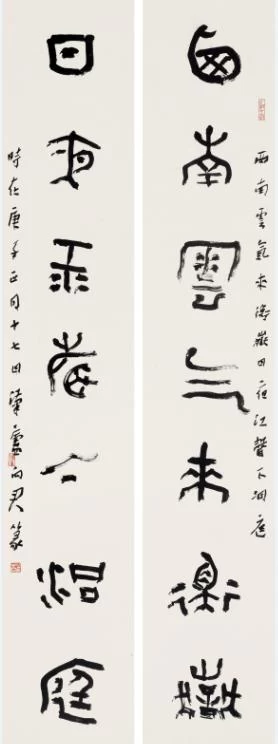 西南雲氣來衡嶽日夜江聲下洞庭
西南雲氣來衡嶽
日夜江聲下洞庭
時在庚子正月十七日